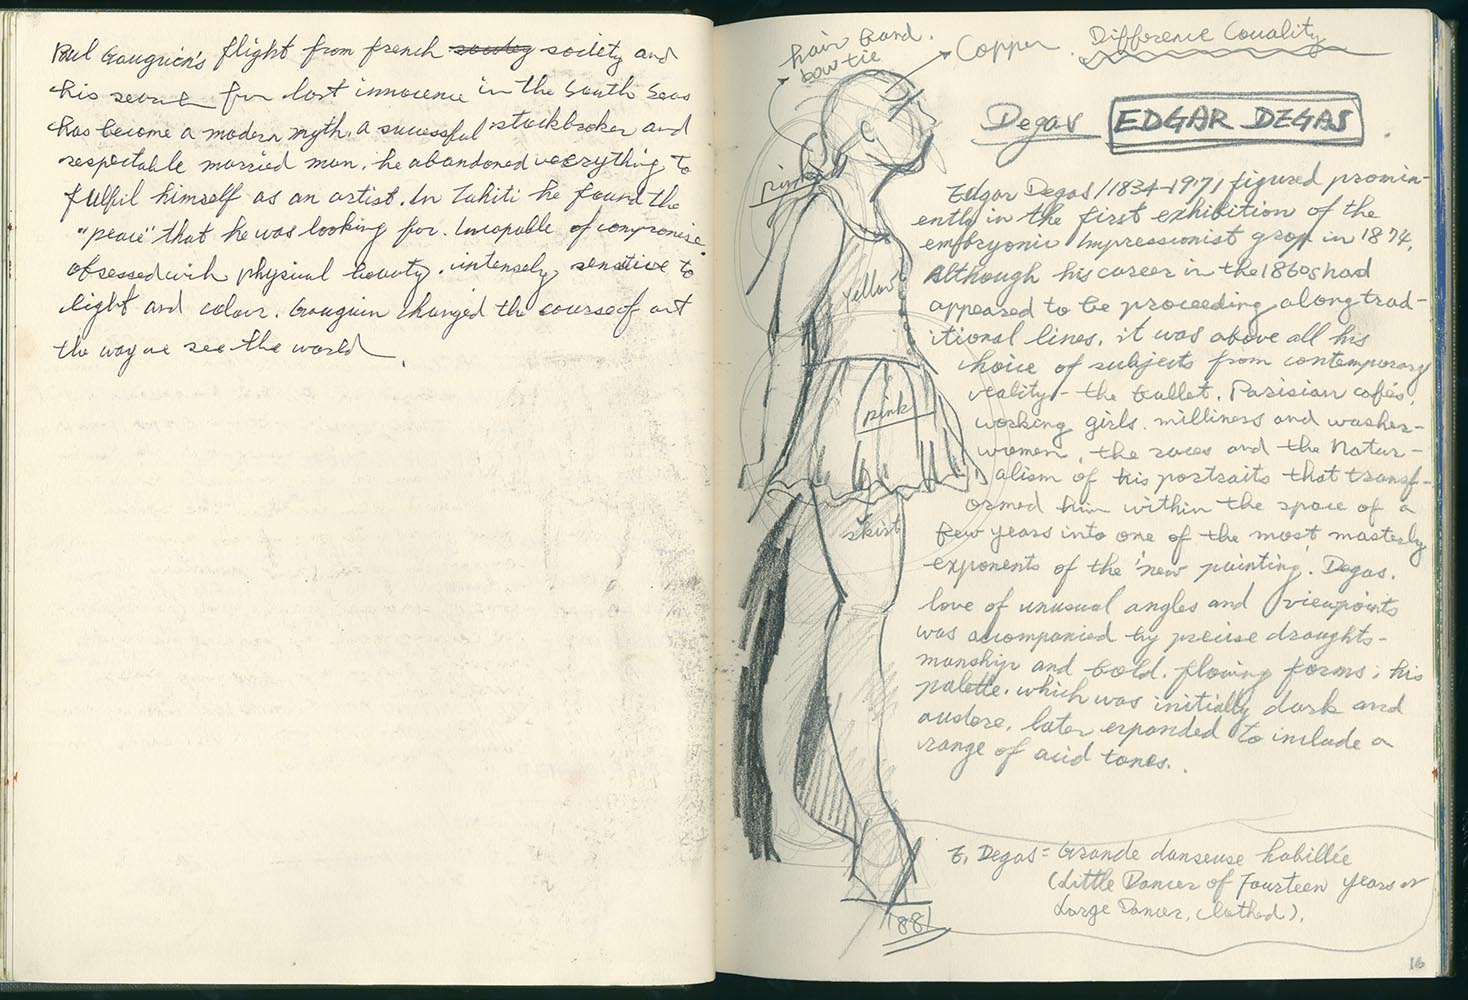 Paul Gauguin's flight from french society society and
his search for lost innocence in the South Seas
has become a modern myth, a sucessful stockbroker and
respectable married man. he abandoned verything to
fulfil himself as an artist. In Tahiti he found the
"peace" that he was looking for. Incapable of compromise
obsessed wih physical beauty. intensely sensitive to
light and colour. Gauguin changed the course of art
the way we see the world.
hair band.
bow tie
Copper
Difference Couality
Degas EDGAR DEGAS
pink
Edgar Degas /1834-1917/ figured promin-
ently in the first exhibition of the
embryonic Impressionist grop in 1874.
Although his career in the 1860s had
appeared to be proceeding along trad-
itional lines, it was above all his
choice of subjects from contemporary
reality - the ballet, Parisian cafés,
working girls. milliners and washer-
women, the races and the Natur-
alism of his portraits that transf-
ormed him within the space of a
few years into one of the most masterly
exponents of the 'new painting'. Degas.
love of unusual angles and viewpoints
was acompanied by precise draughts-
manship and bold. flowing forms; his
palette. which was initially dark and
austere, later expanded to include a
range of acid tones.
yellow
pink
skirt
E. Degas = Grande danseuse habillée
(Little Dancer of Fourteen years or
Large Dancer, clothed).
1881
16